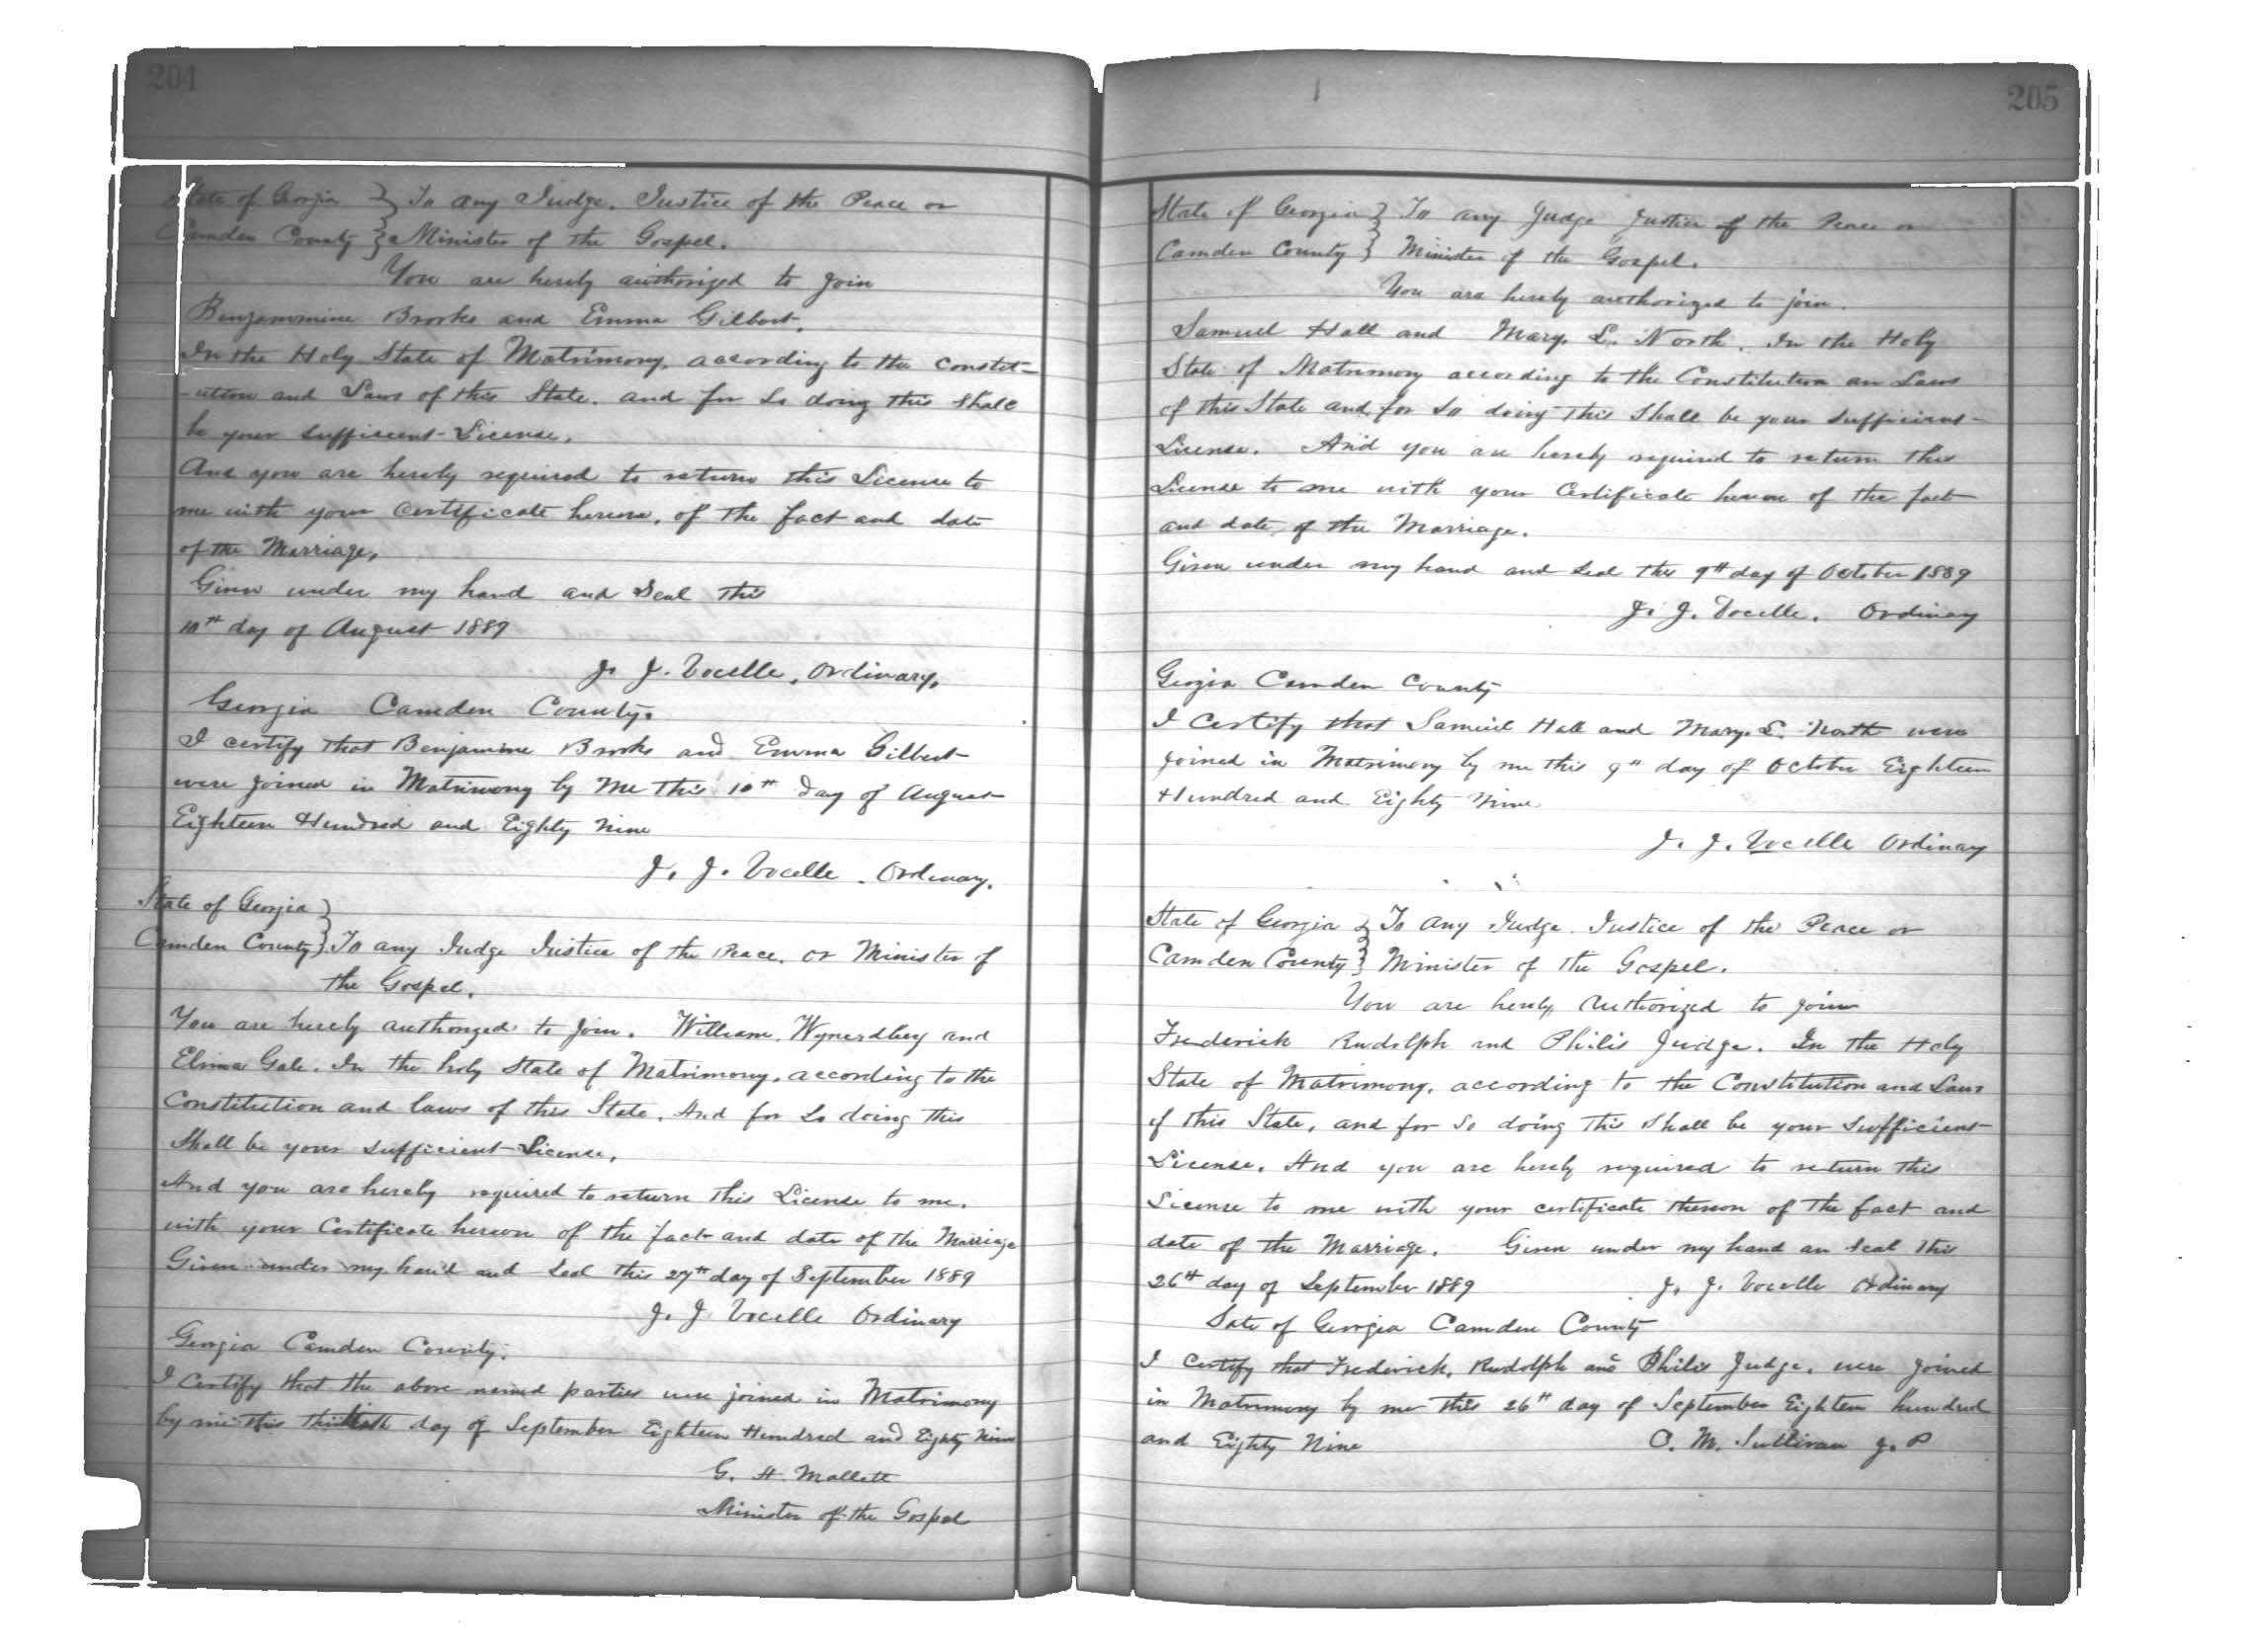 204
State of Georgia } To any Judge. Justice of the Peace or
Camden County } Minister of the Gospel.
You are hereby authorized to join
Benjammine Brooks and Emma Gilbert.
In the Holy State of Matrimony, according to the Constit-
-ution and Laws of this State. and for so doing this shall
be your sufficient License.
And you are hereby required to return this License to
me with your Certificate hereon, of the fact and date
of the Marriage,
Given under my hand and Seal this
10th day of August 1889
J. J. Vocelle, Ordinary,
Georgia Camden County.
I certify that Benjamine Brooks and Emma Gilbert
were joined in Matrimony by Me this 10th day of August
Eighteen Hundred and Eighty Nine
J. J. Vocelle. Ordinary.
State of Georgia }
Camden County } To any Judge Justice of the Peace. or Minister of
the Gospel.
You are hereby authorized to join. William and
Gale. In the holy State of Matrimony, according to the
Constitution and laws of this State. And for so doing this
Shall be your sufficient License,
And you are hereby required to return this License to me.
with your Certificate hereon of the fact and date of the Marriage
Given under my hand and Seal this 27th day of September 1889
J. J. Vocelle Ordinary
Georgia Camden County.
I Certify that the above named parties were joined in Matrimony
by me this day of September Eighteen Hundred and Eighty Nine
G. H. Mallett
Minister of the Gospel
205
State of Georgia } To any Judge Justice of the Peace or
Camden County } Minister of the Gospel.
You are hereby authorized to join.
Samuel Hall and Mary. L. North. In the Holy
State of Matrimony according to the Constitution an Laws
of this State and for so doing this shall be your sufficient
License. And you are hereby required to return this
License to me with your Certificate hereon of the fact
and date of the Marriage.
Given under my hand and Seal this 9th day of October 1889
J. J. Vocelle. Ordinary
Georgia Camden County
I Certify that Samuel Hall and Mary. L. North were
joined in Matrimony by me this 9th day of October Eighteen
Hundred and Eighty Nine
J. J. Vocelle Ordinary
State of Georgia } To any Judge. Justice of the Peace or
Camden County } Minister of the Gospel.
You are hereby Authorized to join
Frederick Rudolph and Philis Judge. In the Holy
State of Matrimony, according to the Constitution and Laws
of this State, and for so doing this shall be your sufficient
License. And you are hereby required to return this
License to me with your certificate thereon of the fact and
date of the Marriage. Given under my hand an seal this
26th day of September 1889 J. J. Vocelle Ordinary
Sate of Georgia Camden County
I Certify that Frederick. Rudolph and Philis Judge, were joined
in Matrimony by me this 26th day of September Eighteen hundred
and Eighty Nine C. M. Sullivan J. P